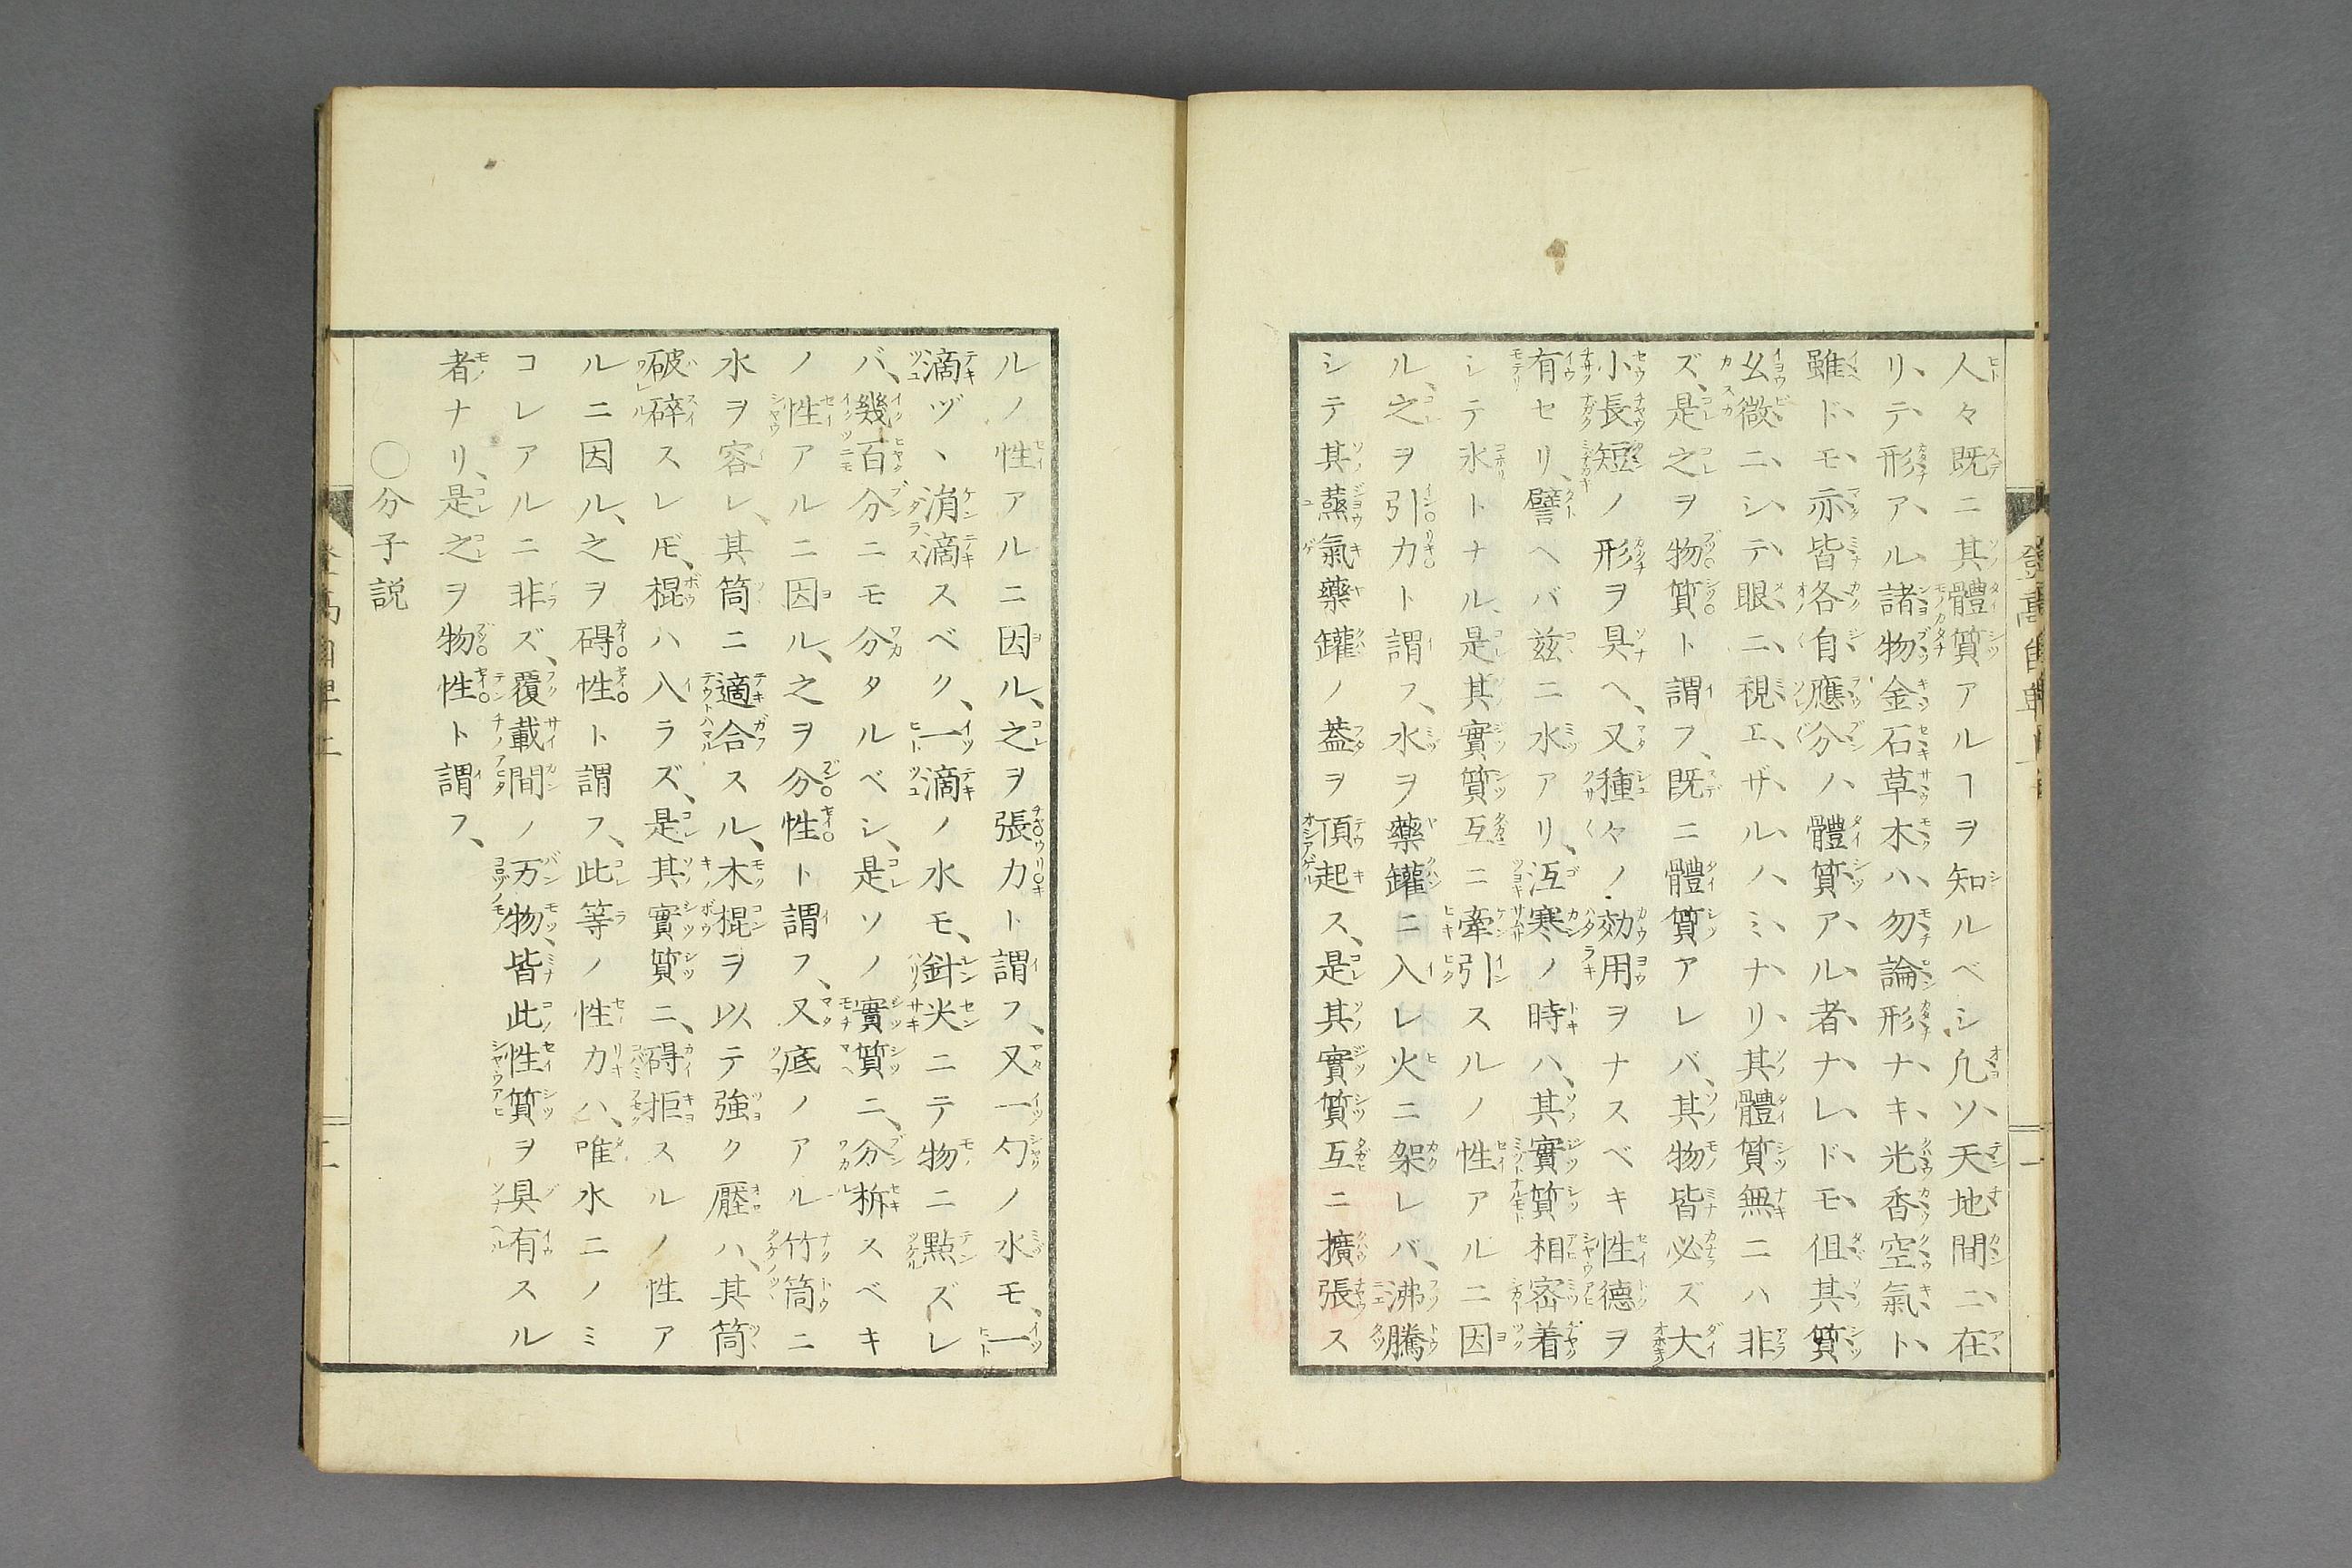 人々既ニ其體質アルヿヲ知ルベシ凢ソ天地間ニ在
リテ形アル諸物金石草木ハ勿論形ナキ光香空氣ト
雖ドモ亦皆各自應分ノ體質アル者ナレドモ但其質
幺微ニシテ眼ニ視エザルノミナリ其體質無ニハ非
ズ、是之ヲ物質ト謂フ、既ニ體質アレバ、其物皆必ズ大
小長短ノ形ヲ具ヘ、又種々ノ効用ヲナスベキ性德ヲ
有セリ、譬ヘバ茲ニ水アリ、沍寒ノ時ハ、其實質相密着
シテ氷トナル、是其實質互ニ牽引スルノ性アルニ因
ル、之ヲ引力ト謂フ、水ヲ藥罐ニ入レ火ニ架レバ、沸騰
シテ其蒸氣藥罐ノ蓋ヲ頂起ス、是其實質互ニ擴張ス
ルノ性アルニ因ル、之ヲ張力ト謂フ、又一勺ノ水モ、一
滴ヅヽ消滴スベク、一滴ノ水モ、針尖ニテ物ニ點ズレ
バ、幾百分ニモ分タルベシ、是ソノ實質ニ、分析スベキ
ノ性アルニ因ル、之ヲ分性ト謂フ、又底ノアル竹筒ニ
水ヲ容レ、其筒ニ適合スル、木棍ヲ以テ強ク壓ハ、其筒
破碎スレ𪜈、棍ハ入ラズ、是其實質ニ、碍拒スルノ性ア
ルニ因ル、之ヲ碍性ト謂フ、此等ノ性力ハ、唯水ニノミ
コレアルニ非ズ、覆載間ノ万物、皆此性質ヲ具有スル
者ナリ、是之ヲ物性ト謂フ、
〇分子説